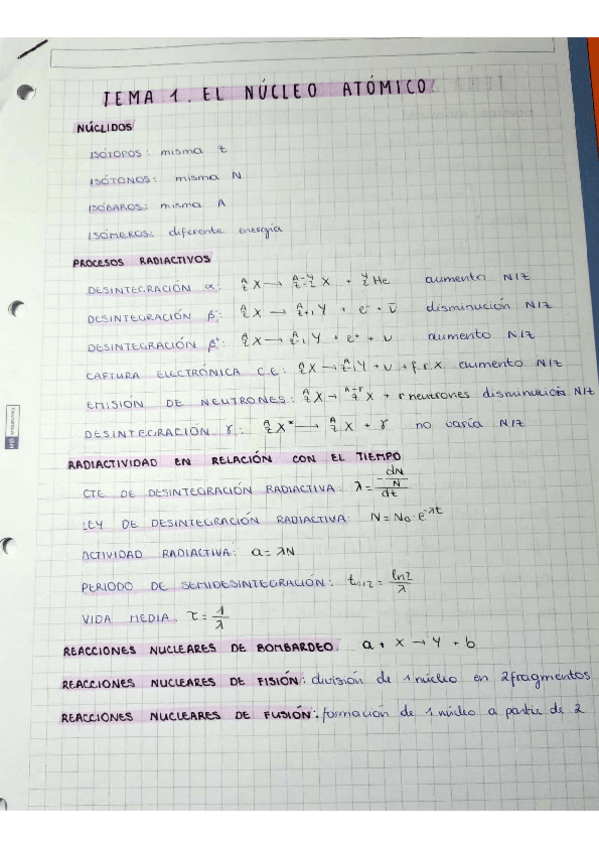 TEMA 1. EL NÚCLEO ATÓMICO
NÚCLIDOS
ISÓTOPOS: misma t
ISÓTONOS: misma N
ISÓBAROS: misma A
ISÓMEROS: diferente energía
PROCESOS RADIACTIVOS
DESINTEGRACIÓN α: ᴬ_Z X → ᴬ⁻⁴_Z₋₂ X + ⁴₂ He aumento N/Z
DESINTEGRACIÓN β⁻: ᴬ_Z X → ᴬ_Z₊₁ Y + e⁻ + ν̄ disminución N/Z
DESINTEGRACIÓN β⁺: ᴬ_Z X → ᴬ_Z₋₁ Y + e⁺ + ν aumento N/Z
CAPTURA ELECTRÓNICA C.E: ᴬ_Z X → ᴬ_Z₋₁ Y + ν + f.r.X aumento N/Z
EMISIÓN DE NEUTRONES: ᴬ_Z X → ᴬ⁻ʳ_Z X + r neutrones disminución N/Z
DESINTEGRACIÓN γ: ᴬ_Z X* → ᴬ_Z X + γ no varía N/Z
RADIACTIVIDAD EN RELACIÓN CON EL TIEMPO
CTE DE DESINTEGRACIÓN RADIACTIVA: λ = (-dN/N)/dt
LEY DE DESINTEGRACIÓN RADIACTIVA: N = N₀ · e^-λt
ACTIVIDAD RADIACTIVA: a = λN
PERIODO DE SEMIDESINTEGRACIÓN: t₁/₂ = ln2/λ
VIDA MEDIA: τ = 1/λ
REACCIONES NUCLEARES DE BOMBARDEO: a + X → Y + b
REACCIONES NUCLEARES DE FISIÓN: división de 1 núcleo en 2 fragmentos
REACCIONES NUCLEARES DE FUSIÓN: formación de 1 núcleo a partir de 2